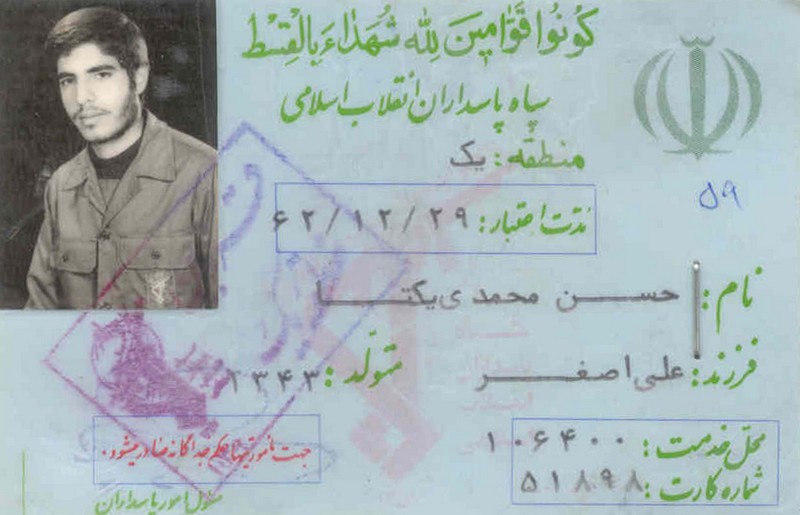 كُونُوا قَوّامِينَ لِلّه شُهَدٰاءَ بِالْقِسْط
سپاه پاسداران انقلاب اسلامی
منطقه: یک
۵۹
مدّت اعتبار: ۶۲/۱۲/۲۹
نام: حسن محمدی یکتا
فرزند: علی اصغر متولّد: ۱۳۴۳
محل خدمت: ۱۰۶۴۰۰
شماره کارت: ۵۱۸۹۸
جهت مأموریتها حکم جداگانه صادر میشود.
مسئول امور پاسداران